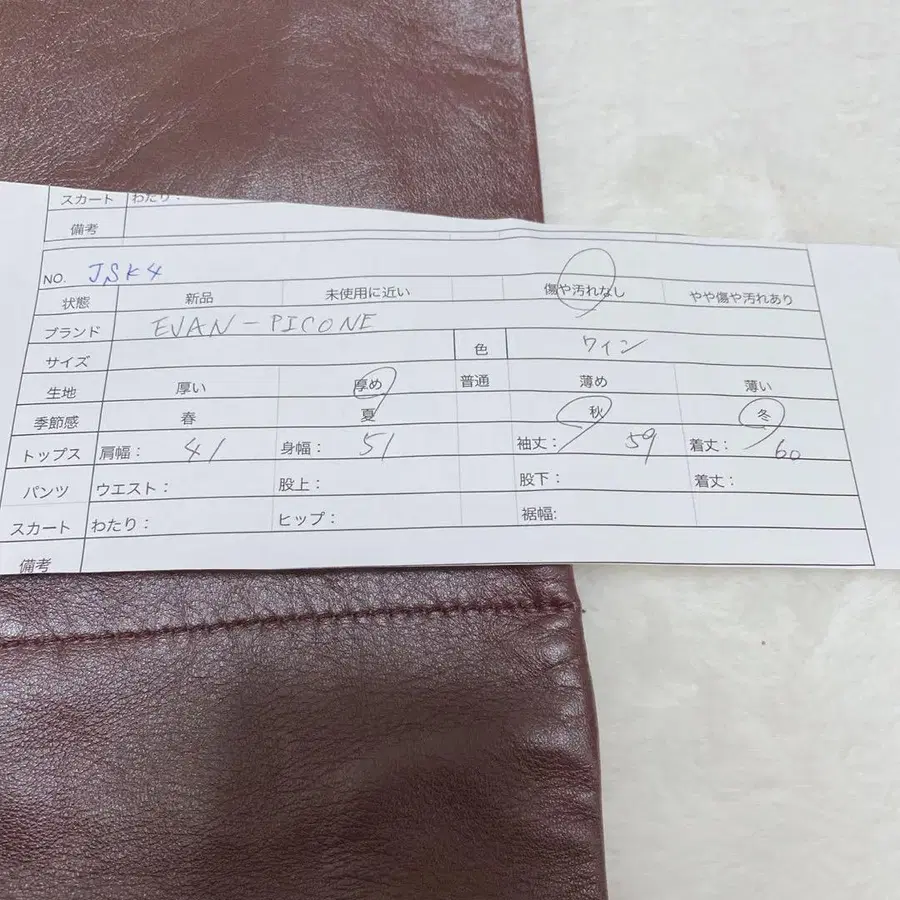 スカート わたり：
備考
NO. JSK4
状態 新品 未使用に近い 傷や汚れなし やや傷や汚れあり
ブランド EVAN-PICONE
サイズ 色 ワイン
生地 厚い 厚め 普通 薄め 薄い
季節感 春 夏 秋 冬
トップス 肩幅： 41 身幅： 51 袖丈： 59 着丈： 60
パンツ ウエスト： 股上： 股下： 着丈：
スカート わたり： ヒップ： 裾幅:
備考